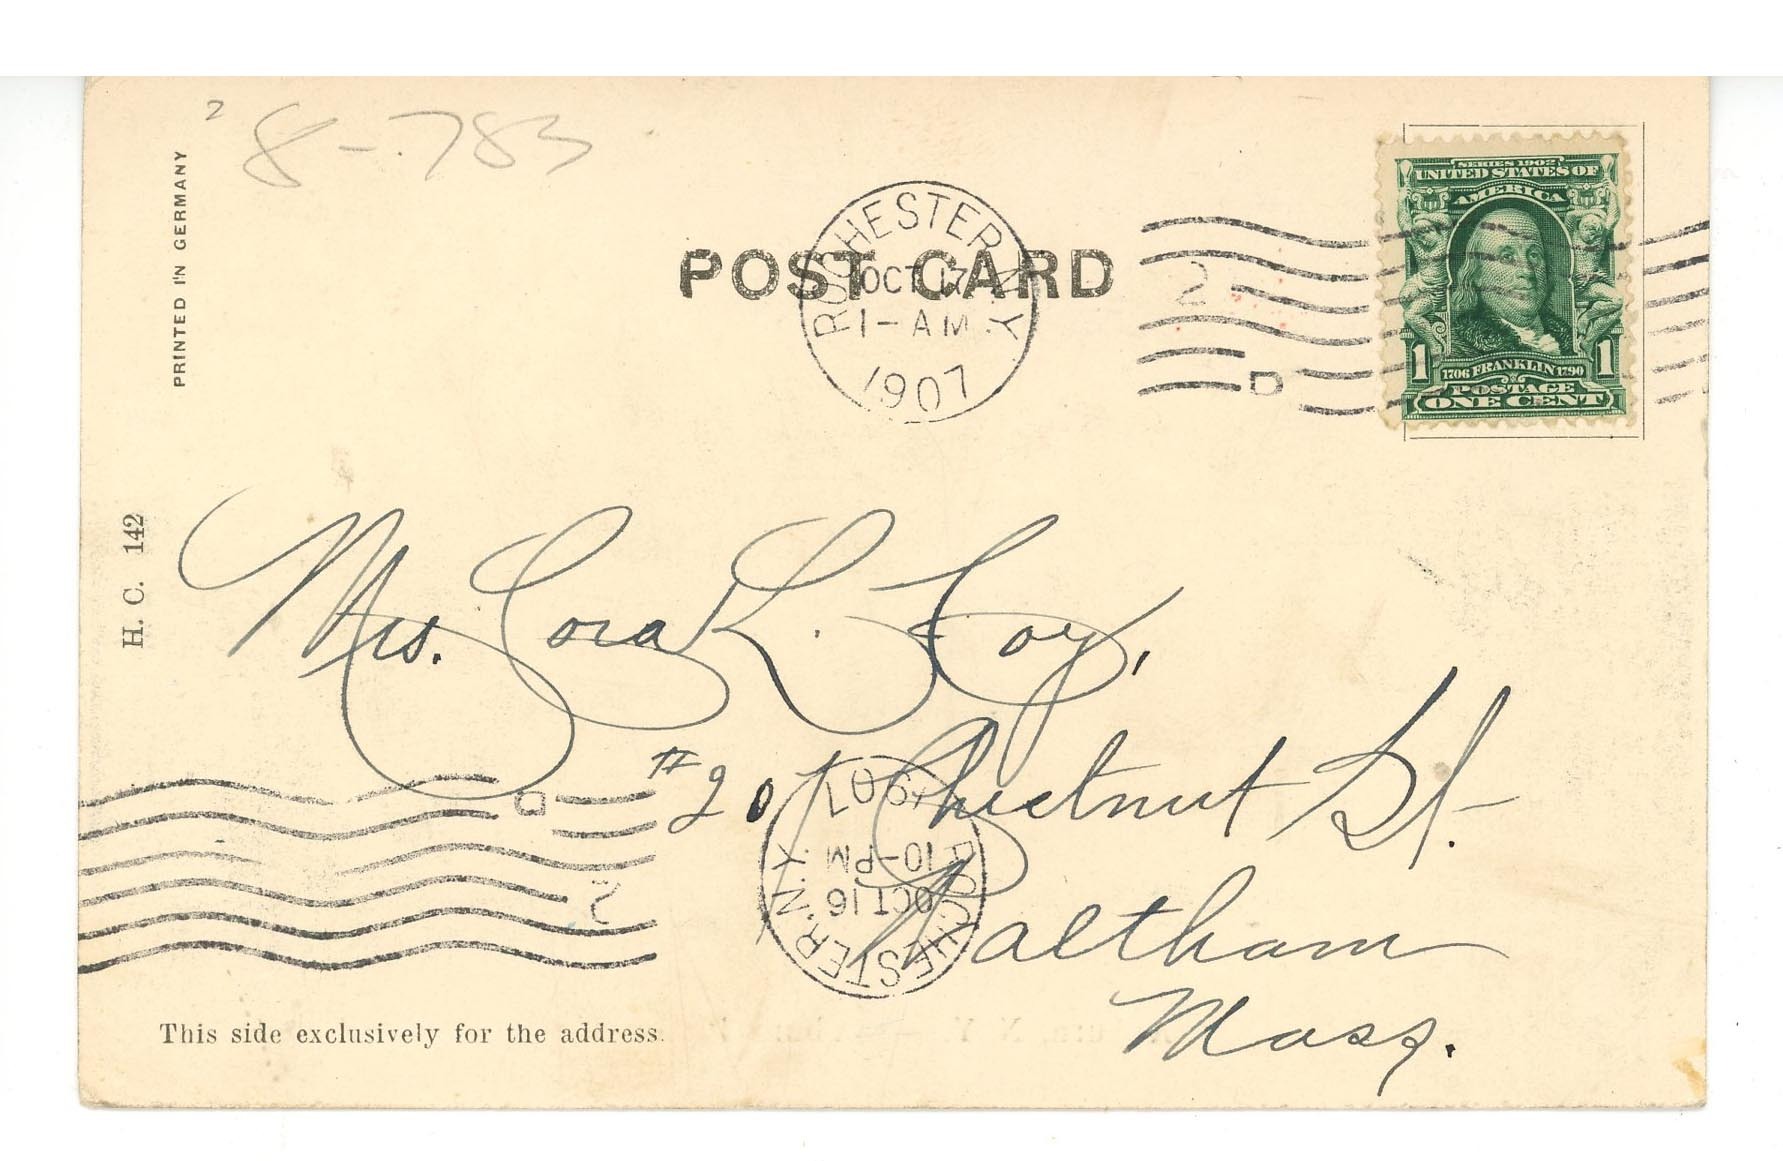 2
8-783
PRINTED IN GERMANY
POST CARD
ROCHESTER, N.Y.
OCT 17
1-AM
1907
2
D
SERIES 1902
UNITED STATES OF
AMERICA
1 1706 FRANKLIN 1790 1
POSTAGE
ONE CENT
H. C. 142
Mrs. Cora L. Foy,
#207 Chestnut St.
Waltham
Mass.
ROCHESTER, N.Y.
OCT 16
10-PM
1907
D
2
This side exclusively for the address.